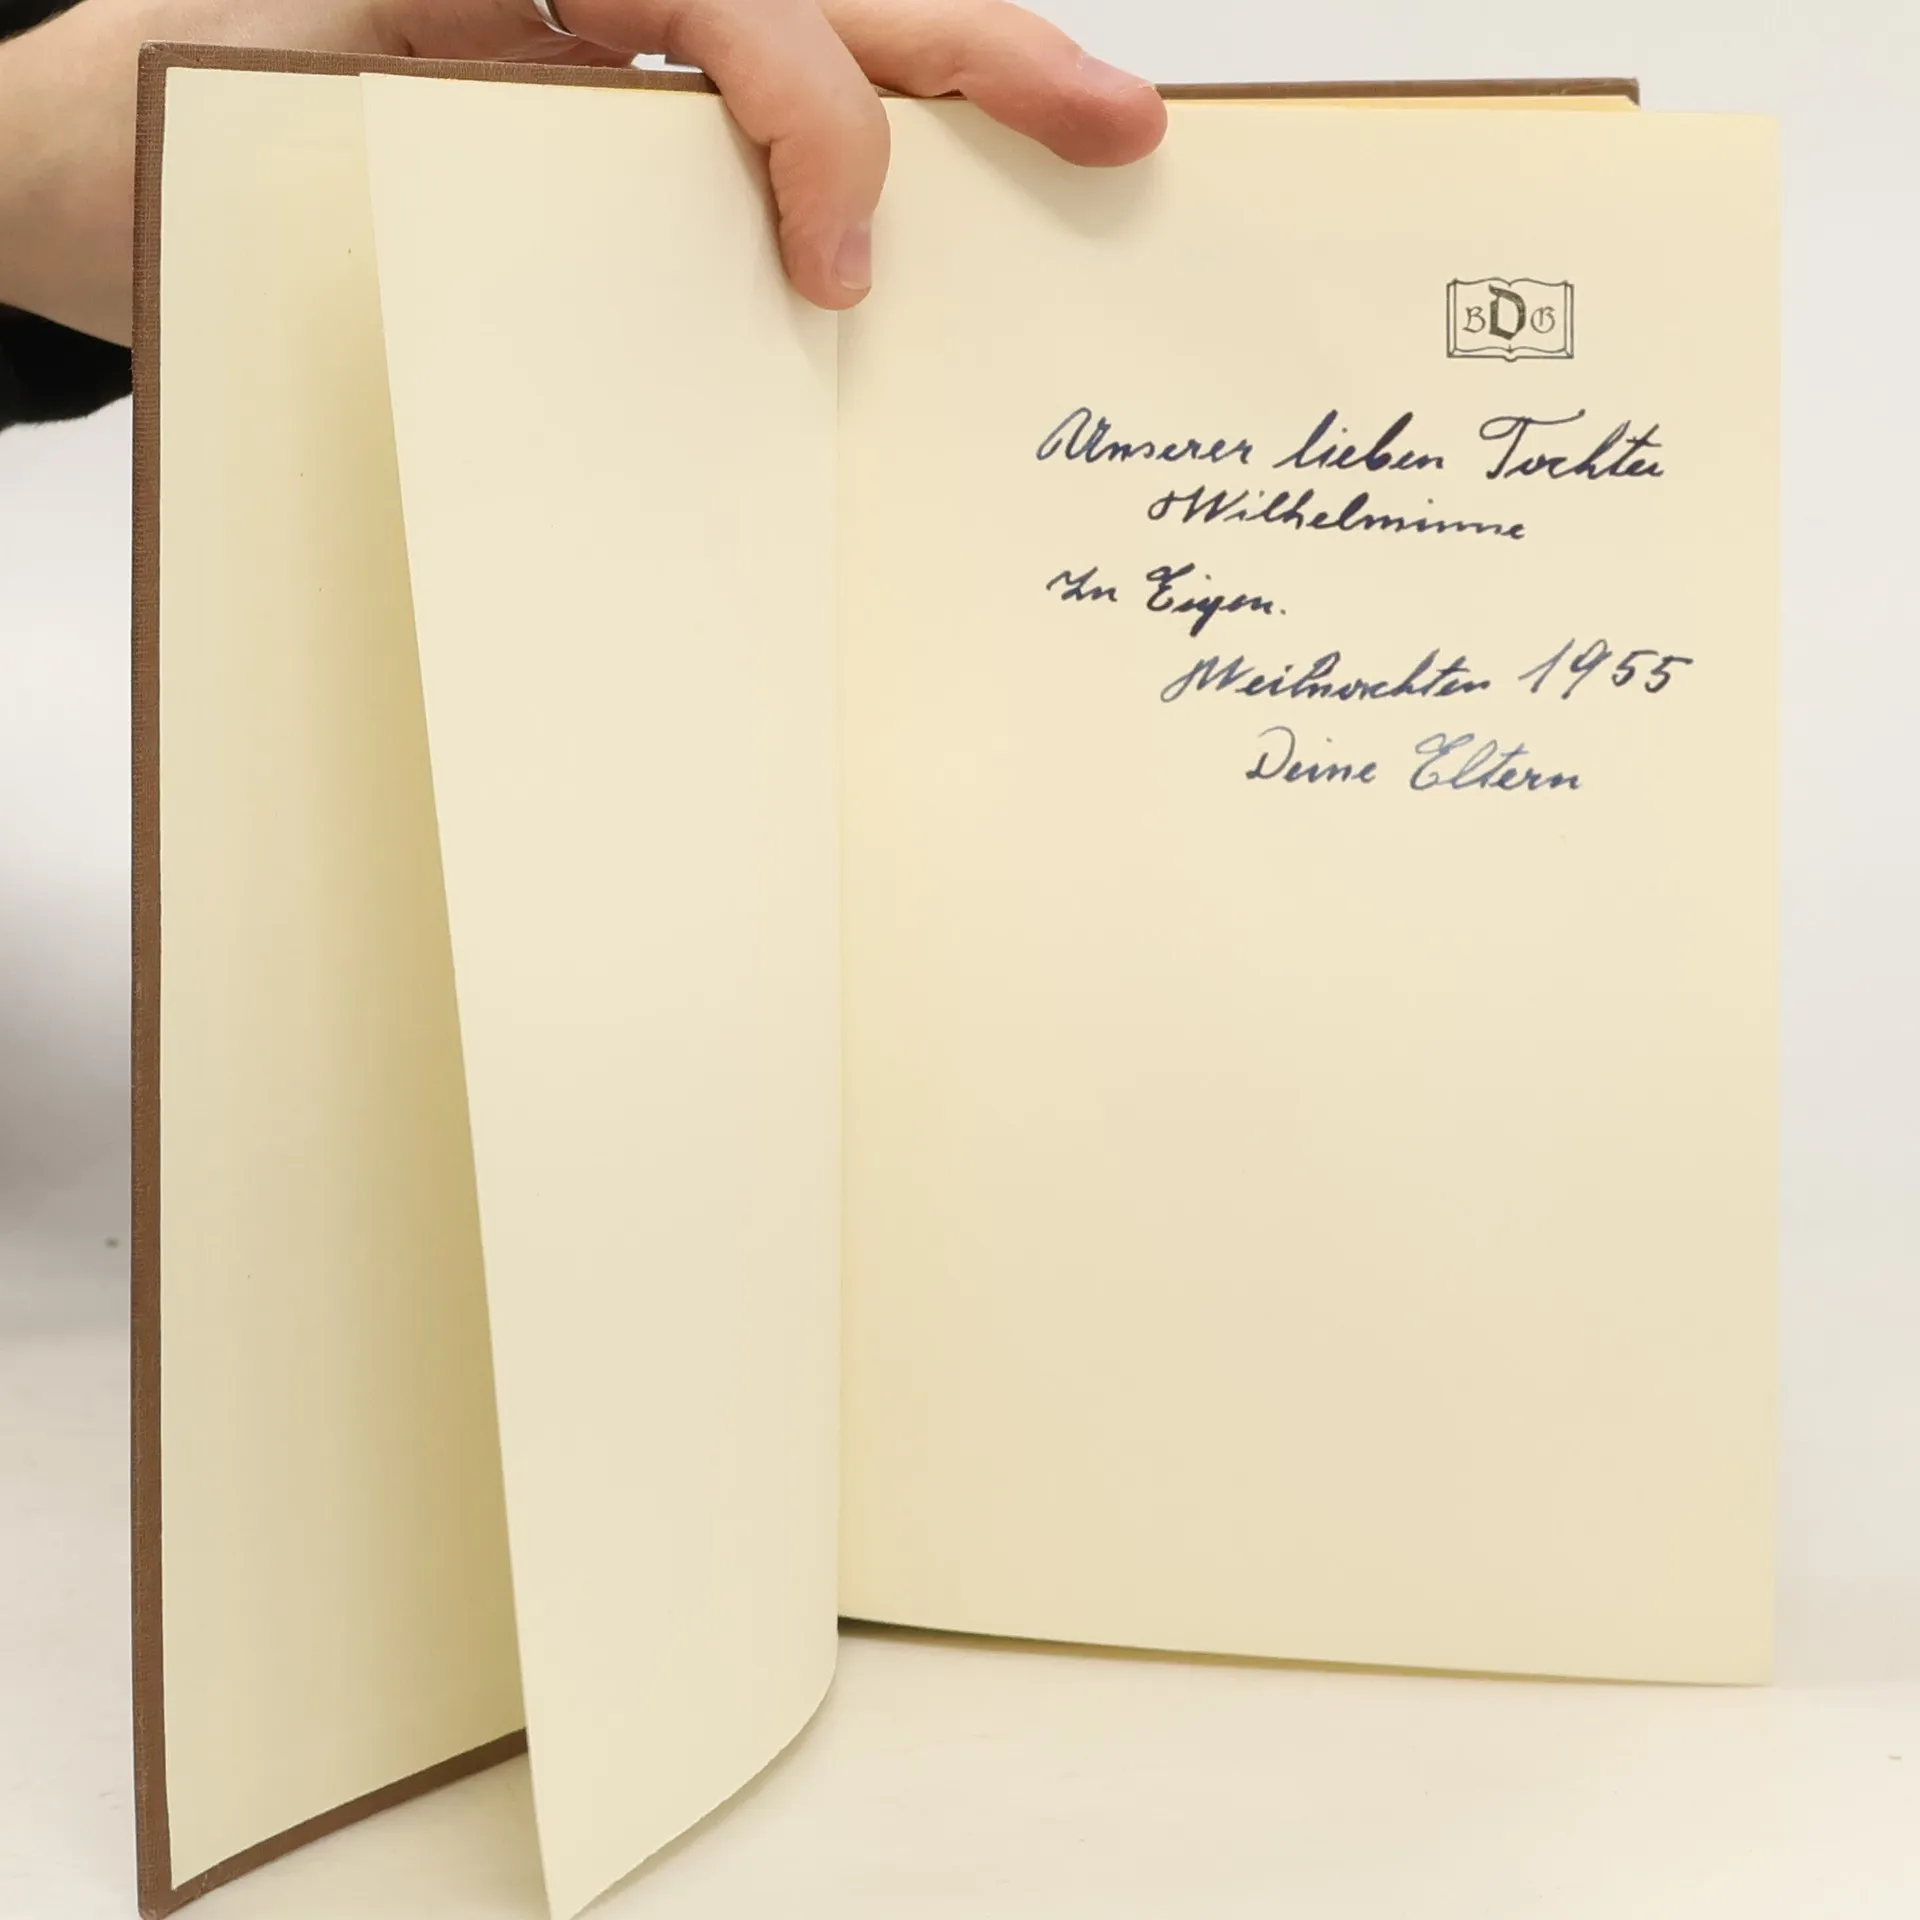 BDG
Unserer lieben Tochter
Wilhelminne
Zu Eigen.
Weihnachten 1955
Deine Eltern